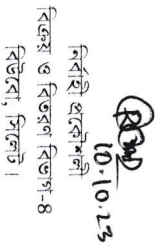 10.10.23
নির্বাহী প্রকৌশলী
বিক্রয় ও বিতরণ বিভাগ-৪
বিউবো, সিলেট।